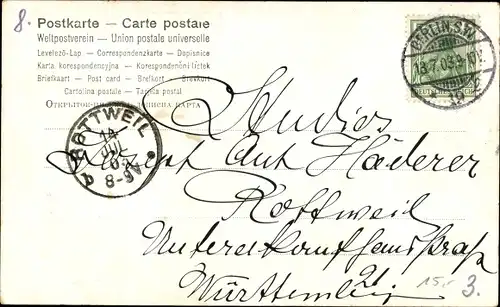 8.
Postkarte — Carte postale
Weltpostverein — Union postale universelle
Levelező-Lap — Correspondenzkarte — Dopisnice
Karta korespondencyjna — Korespondenční lístek
Briefkaart — Post card — Brefkort — Brevkort
Cartolina postale — Tarjeta postal
BERLIN S.W.
13.7.03.
DEUTSCHES REICH
ROTTWEIL
14
JUL
03
8-9V
b
Studios
Häderer
Rottweil
Württemberg
15.-
3.